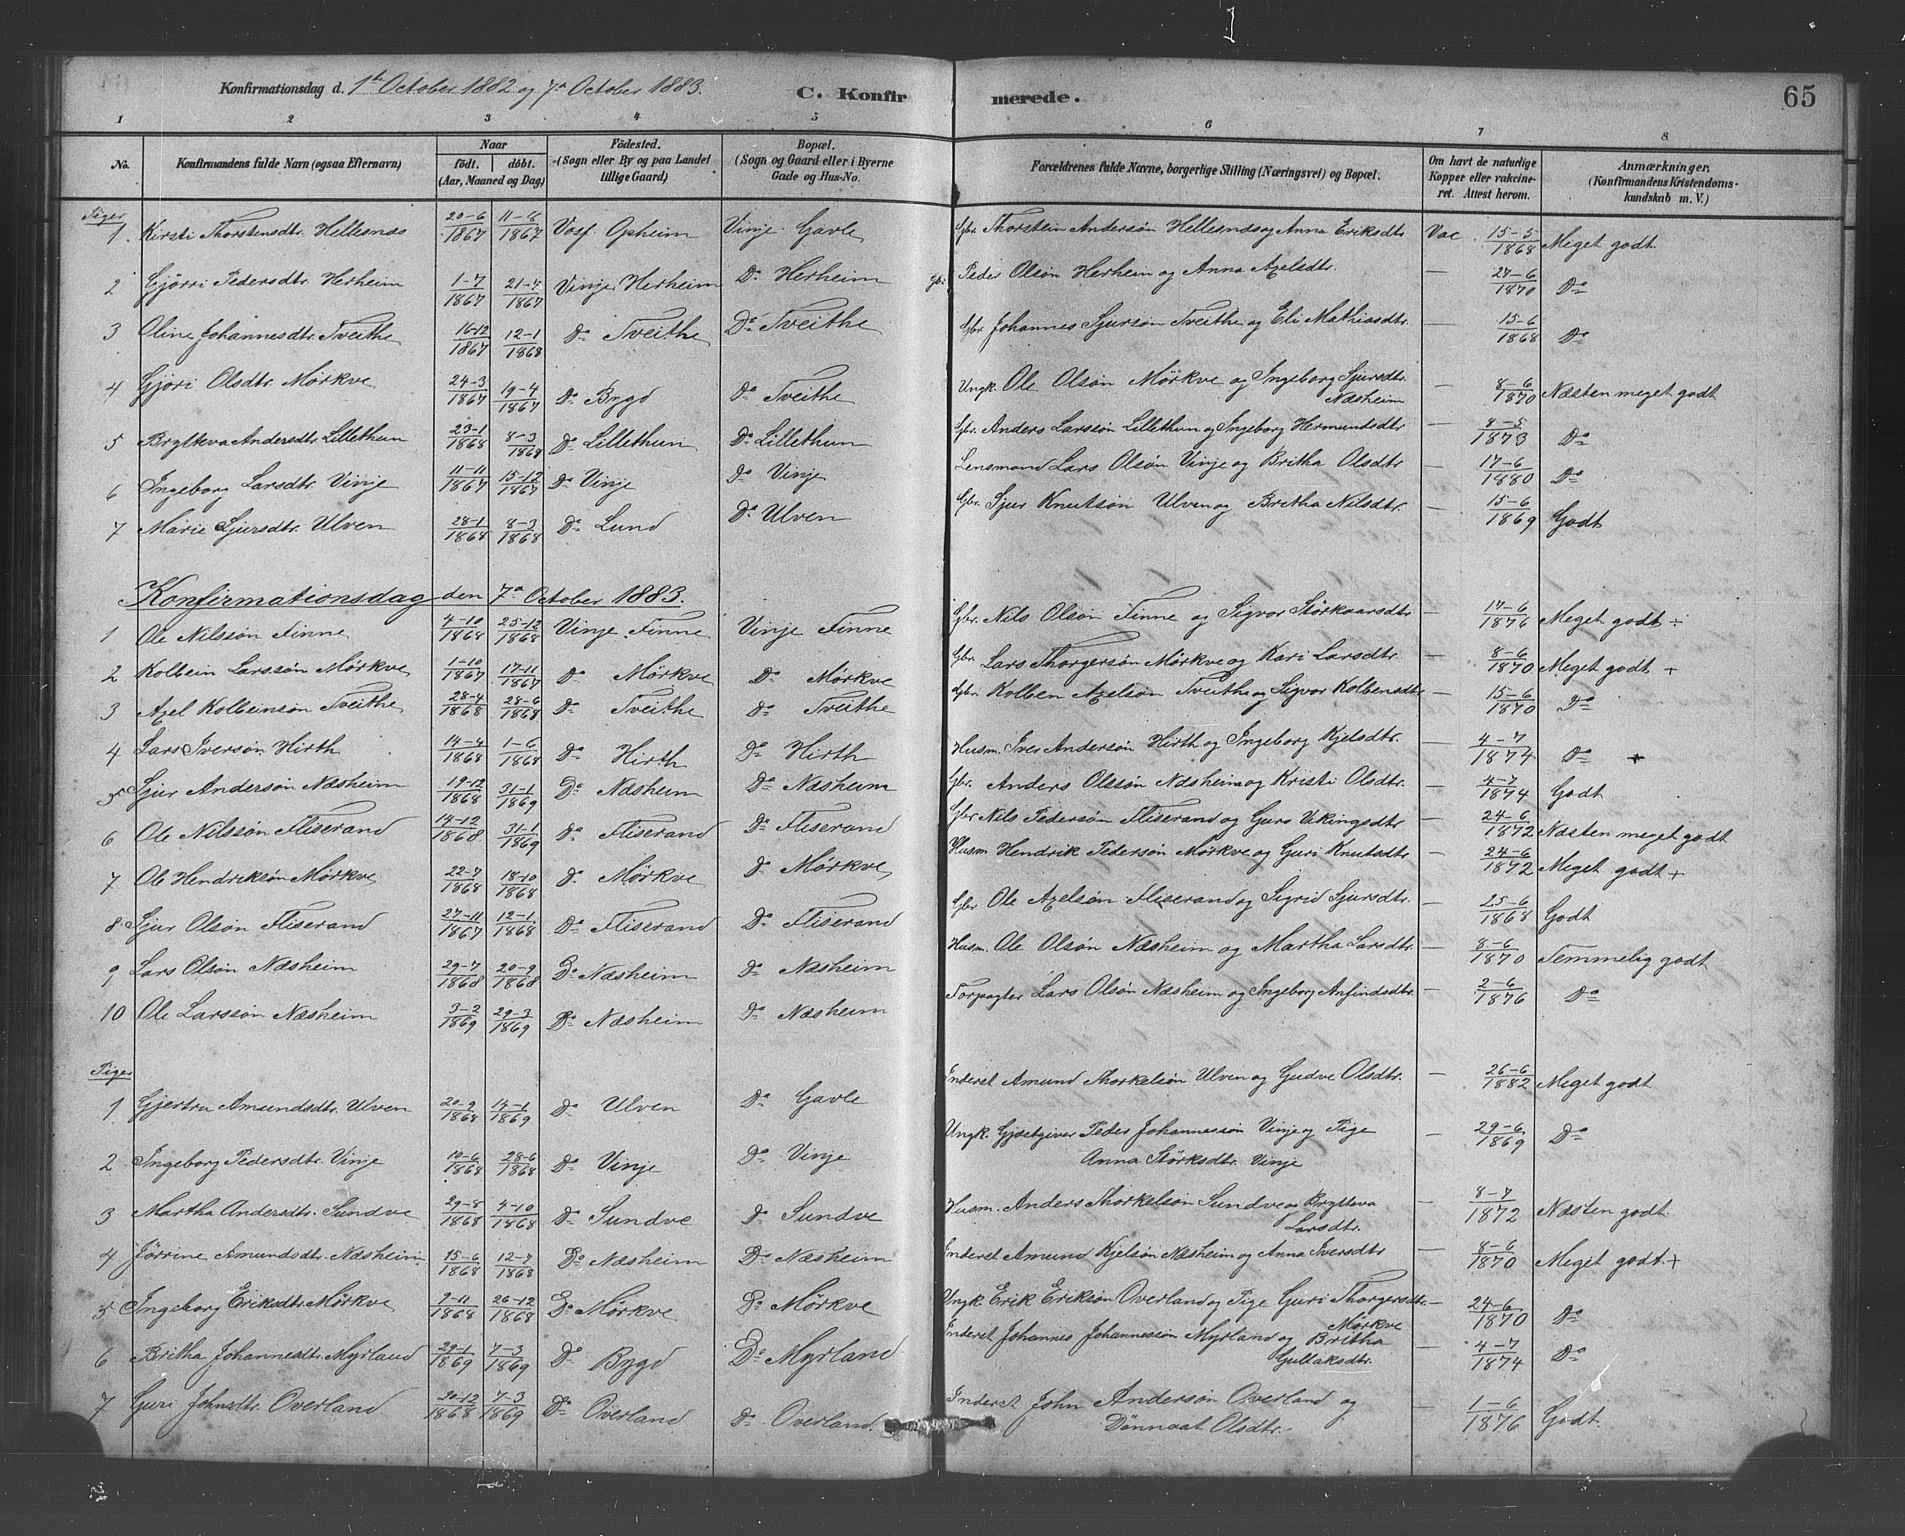 Konfirmationsdag d. 1ste October 1882 og 7de October 1883. C. Konfirmerede. 65
1 2 3 4 5 6 7 8
No. Konfirmandens fulde Navn (ogsaa Efternavn) Naar født. døbt. (Aar, Maaned og Dag) Fødested. (Sogn eller By og paa Landet tillige Gaard) Bopæl. (Sogn og Gaard eller i Byerne Gade og Hus-No. Forældrenes fulde Navne, borgerlige Stilling (Næringsvei) og Bopæl. Om havt de naturlige Kopper eller vakcineret. Attest herom. Anmærkninger. (Konfirmandens Kristendomskundskab m. V.)
Piger
1. Kirsti Thorstensdtr. Hellesnæs 20-6 1867 11-8 1867 Voss Opheim Vinje Gavle Gbr. Thorstein Andersøn Hellesnæs og Anna Eriksdtr. Vac. 15-5 1868 Meget godt
2 Gjørri Pedersdtr. Herheim 1-7 1867 21-7 1867 Vinje Herheim Do Herheim Gbr. Peder Olsøn Herheim og Anna Axelsdtr. — 27-6 1870 Do
3 Oline Johannesdtr. Tveithe 16-12 1867 12-1 1868 Do Tveithe Do Tveithe Gbr. Johannes Sjursøn Tveithe og Eli Mathiasdtr. — 15-6 1868 Do
4 Gjøri Olsdtr. Mørkve 24-3 1867 19-4 1867 Do Bygd Do Tveithe Ungk. Ole Olsøn Mørkve og Ingeborg Sjursdtr. Næsheim — 8-6 1870 Næsten meget godt
5 Brytteva Andersdtr. Lillethun 23-1 1868 8-3 1868 Do Lillethun Do Lillethun Gbr. Anders Larssøn Lillethun og Ingeborg Hermundsdtr. — 8-5 1873 Do
6 Ingeborg Larsdtr. Vinje 11-11 1867 15-12 1867 Do Vinje Do Vinje Lensmand Lars Olsøn Vinje og Britha Olsdtr. — 17-6 1880 Do
7 Marie Sjursdtr. Ulven 28-1 1868 8-3 1868 Do Lund Do Ulven Gbr. Sjur Knutsøn Ulven og Britha Nilsdtr. — 15-6 1869 Godt
Konfirmationsdag den 7de October 1883.
1 Ole Nilssøn Finne 4-10 1868 25-12 1868 Vinje Finne Vinje Finne Gbr. Nils Olsøn Finne og Sigvor Størkaarsdtr. — 17-6 1876 Meget godt ÷
2 Kolbein Larssøn Mørkve 1-10 1867 17-11 1867 Do Mørkve Do Mørkve Gbr. Lars Thorgersøn Mørkve og Kari Larsdtr. — 8-6 1870 Meget godt +
3 Axel Kolbeinsøn Tveithe 28-4 1868 28-6 1868 Do Tveithe Do Tveithe Gbr. Kolben Axelsøn Tveithe og Sigvor Kolbensdtr. 15-6 1870 Do
4 Lars Iversøn Hirth 14-4 1868 1-6 1868 Do Hirth Do Hirth Husm. Iver Andersøn Hirth og Ingeborg Kjelsdtr. — 4-7 1874 Do +
5 Sjur Andersøn Næsheim 19-12 1868 31-1 1869 Do Næsheim Do Næsheim Gbr. Anders Olsøn Næsheim og Kristi Olsdtr. — 4-7 1874 Godt
6 Ole Nilssøn Fliserand 14-12 1868 31-1 1869 Do Fliserand Do Fliserand Gbr Nils Pedersøn Fliserand og Guro Vikingsdtr. — 24-6 1872 Næsten meget godt
7 Ole Hendriksøn Mørkve 22-7 1868 18-10 1868 Do Mørkve Do Mørkve Husm Hendrik Pedersøn Mørkve og Guri Knutsdtr. — 24-6 1872 Meget godt +
8 Sjur Olsøn Fliserand 27-11 1867 12-1 1868 Do Fliserand Do Fliserand Gbr Ole Axelsøn Fliserand og Sigrid Sjursdtr. — 25-6 1868 Godt
9 Lars Olsøn Næsheim 29-7 1868 20-9 1868 Do Næsheim Do Næsheim Husm. Ole Olsøn Næsheim og Martha Larsdtr. — 8-6 1870 Temmelig godt
10 Ole Larssøn Næsheim 3-2 1869 29-3 1869 Do Næsheim Do Næsheim Forpagter Lars Olsøn Næsheim og Ingeborg Anfindsdtr. — 2-6 1876 Do
Piger
1 Gjertru Amundsdtr. Ulven 20-9 1868 14-1 1869 Do Ulven Do Gavle Inderst Amund Thorkelsøn Ulven og Gudve Olsdtr. — 26-6 1882 Meget godt
2 Ingeborg Pedersdtr. Vinje 10-6 1868 28-6 1868 Do Vinje Do Vinje Ungk. Gjæstgiver Peder Johannessøn Vinje og Pige Anna Størksdtr. Vinje — 29-6 1869 Do
3 Martha Andersdtr. Sundve 29-8 1868 4-10 1868 Do Sundve Do Sundve Husm. Anders Thorkelsøn Sundve og Brytteva Larsdtr. — 8-7 1872 Næsten godt
4 Jørrine Amundsdtr. Næsheim 15-6 1868 12-7 1868 Do Næsheim Do Næsheim Inderst Amund Kjelsøn Næsheim og Anna Iversdtr — 8-6 1870 Meget godt. +
5 Ingeborg Eriksdtr. Mørkve 9-11 1868 26-12 1868 Do Mørkve Do Mørkve Ungk Erik Eriksøn Overland og Pige Guri Thorgersdtr. Mørkve — 24-6 1870 Do
6 Britha Johannesdtr. Myrland 29-1 1869 7-3 1869 Do Bygd Do Myrland Inderst Johannes Johannessøn Myrland og Britha Gullaksdtr. — 4-7 1874 Do
7 Guri Johnsdtr. Overland 20-12 1868 7-3 1869 Do Overland Do Overland Inderst John Andersøn Overland og Dønnaat Olsdtr. — 1-6 1876 Godt.